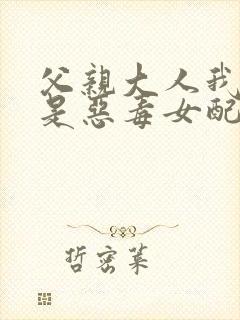 父親大人我
是惡毒女配
哲密萊